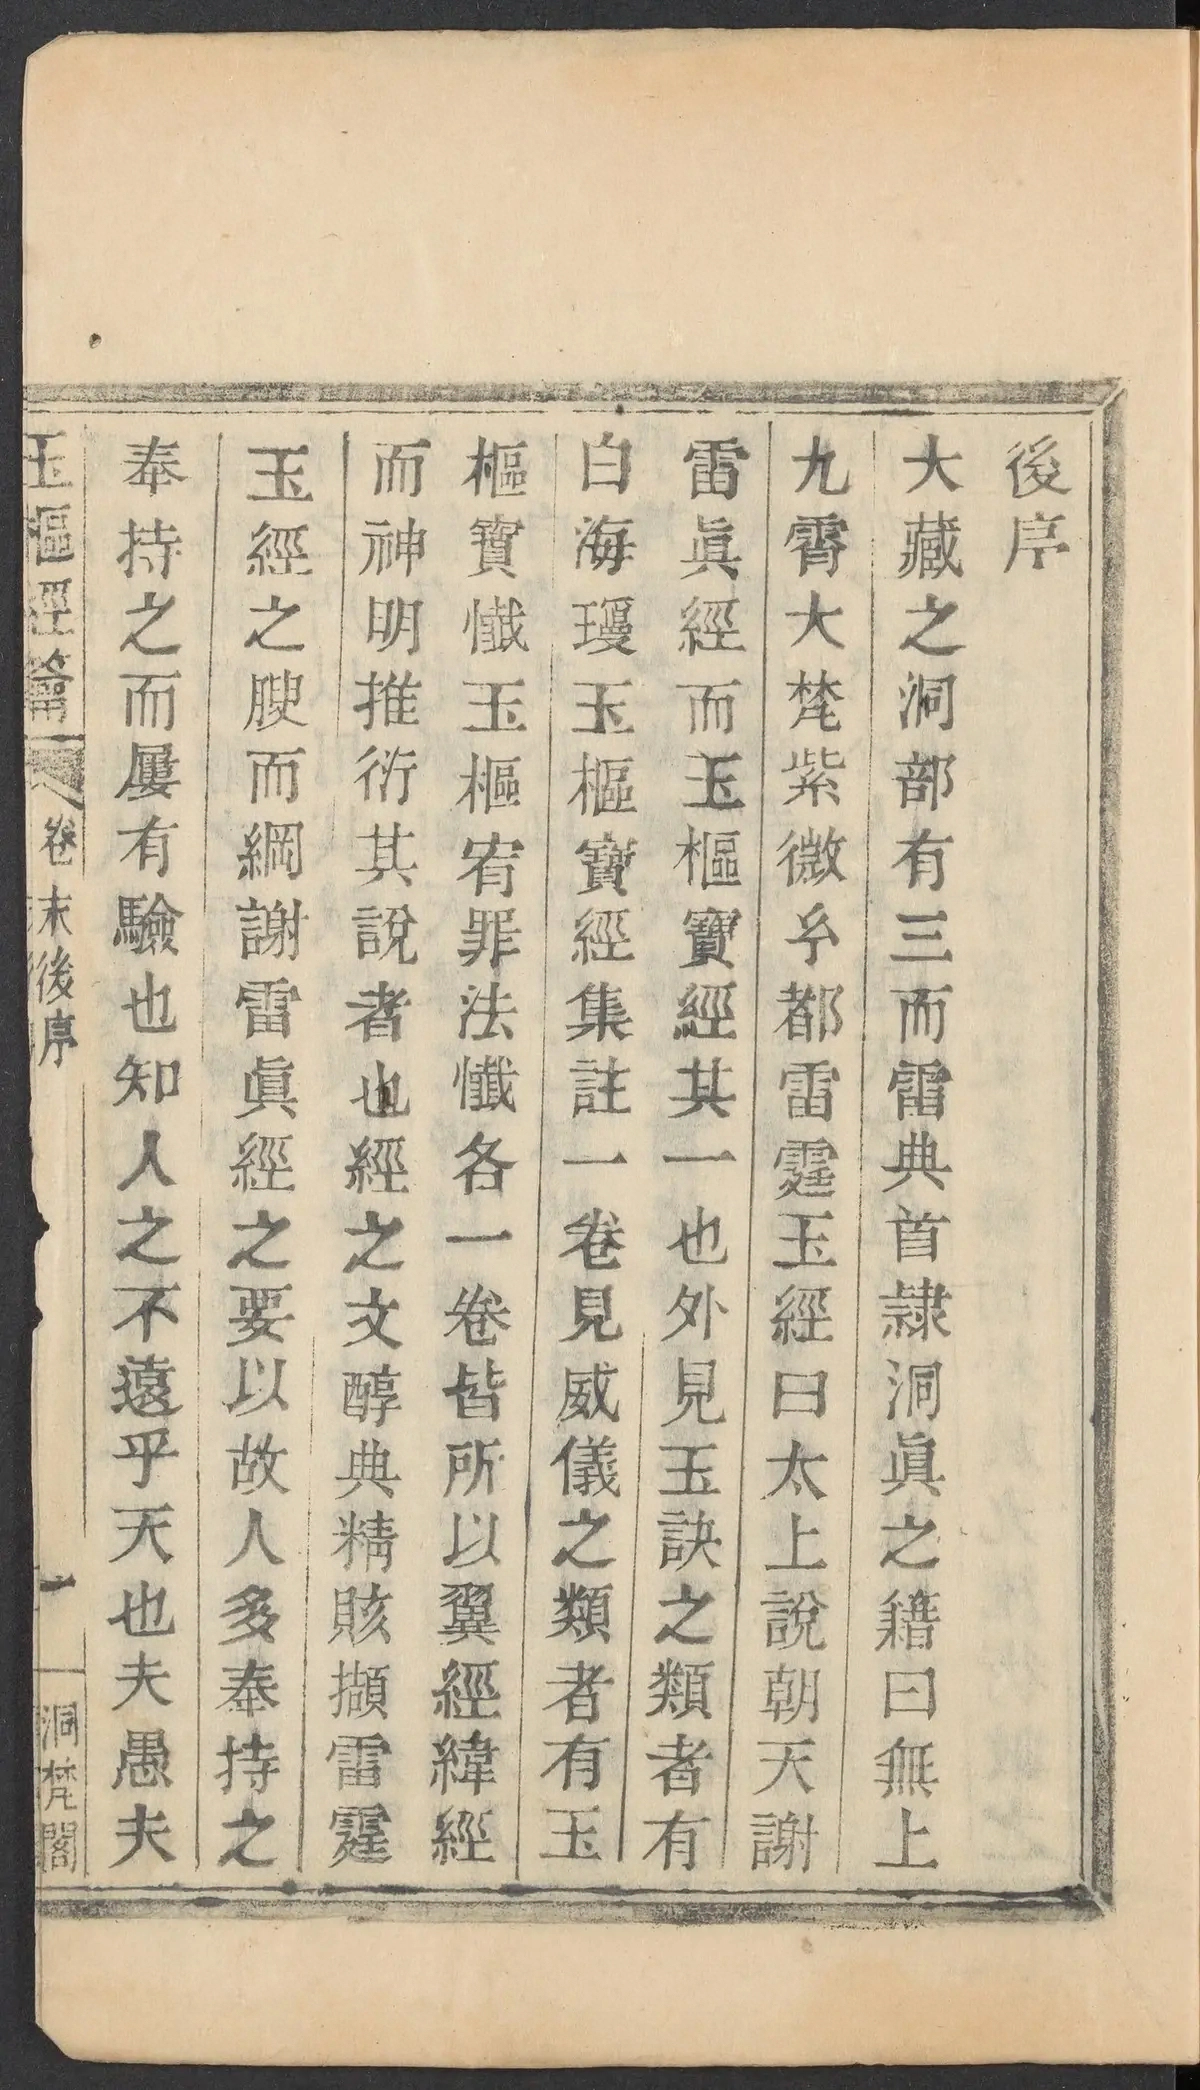 後序
大藏之洞部有三而雷典首隷洞眞之籍曰無上
九霄大梵紫微𤣥都雷霆玉經曰太上說朝天謝
雷眞經而玉樞寶經其一也外見玉訣之類者有
白海瓊玉樞寶經集註一卷見威儀之類者有玉
樞寶懺玉樞宥罪法懺各一卷皆所以翼經緯經
而神明推衍其說者也經之文醇典精賅擷雷霆
玉經之腴而綱謝雷眞經之要以故人多奉持之
奉持之而屢有驗也知人之不遠乎天也夫愚夫
玉樞經籥 卷末後序 一 洞梵閣